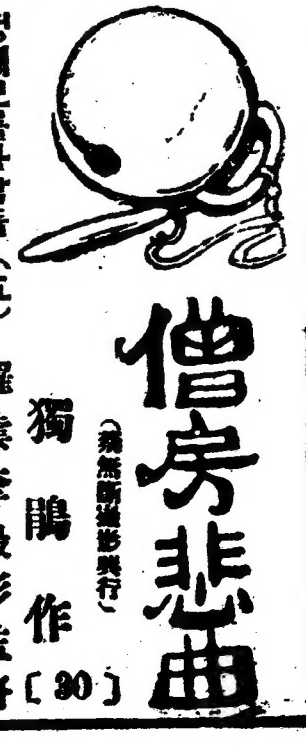 僧房悲曲
（禁無斷撮影興行）
獨鵑作
〔30〕